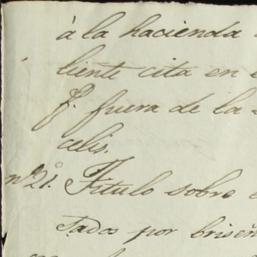 á la hacienda
liente cita en e
p. fuera de la
celis.
nº 21. Titulo sobre
tados por briseñ